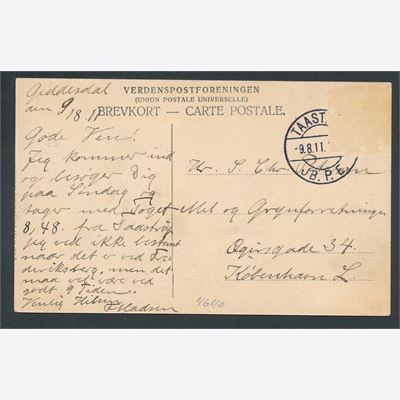 Geddesdal
den 9/8. 11
VERDENSPOSTFORENINGEN
(UNION POSTALE UNIVERSELLE)
BREVKORT — CARTE POSTALE.
Gode Ven!
Jeg kommer ind
og besøger Dig
paa Søndag og
tager med Toget
8,48. fra Taastrup
jeg ved ikke bestemt
naar det er ved Fre
deriksberg, men det
maa vel være ved
godt 9 Tiden.
Venlig Hilsen
Madsen
TAAST.
-9.8.11.
JB. P. E.
Hr. S. Chr.
Mel og Grynforretningen
Ogirsgade 34.
København L.
4640